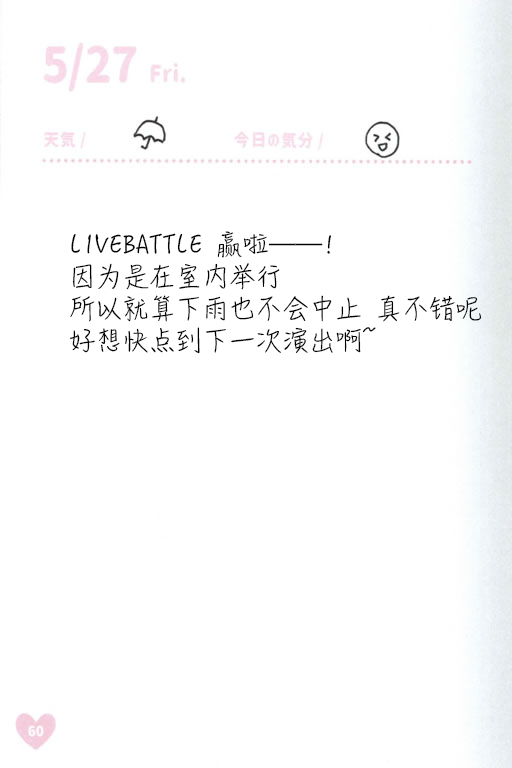 5/27 Fri.
天気 / 今日の気分 /
LIVEBATTLE 赢啦——！
因为是在室内举行
所以就算下雨也不会中止 真不错呢
好想快点到下一次演出啊~
60